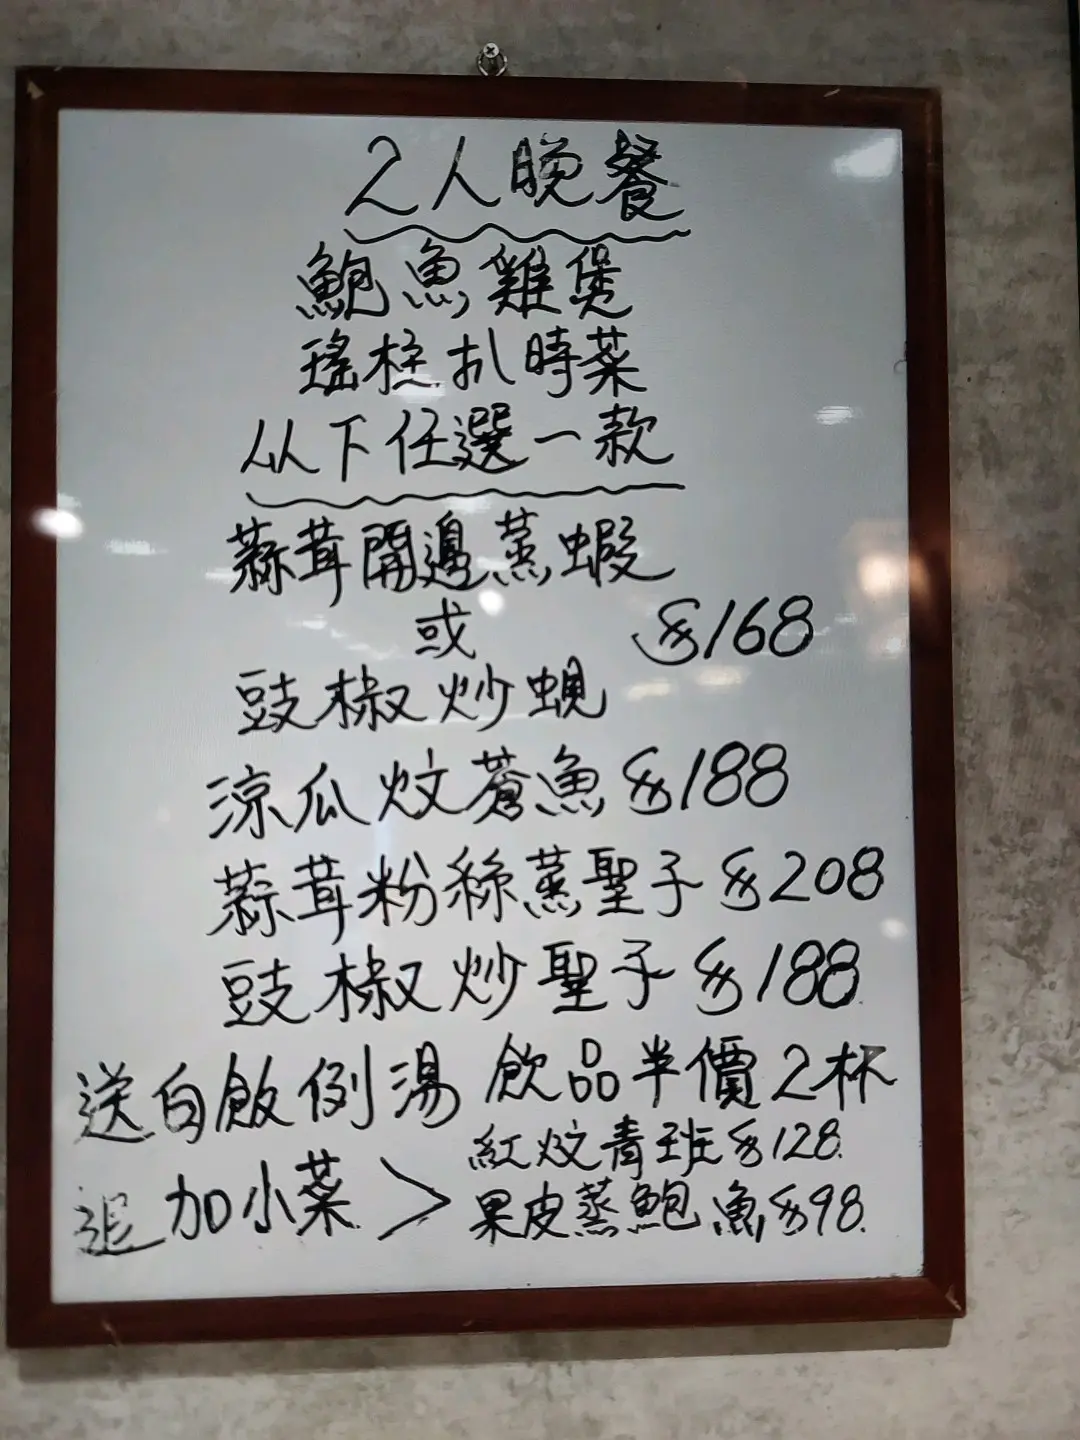 2人晚餐
鮑魚雞煲
瑤柱扒時菜
以下任選一款
蒜茸開邊蒸蝦
或 $168
豉椒炒蜆
涼瓜炆蒼魚 $188
蒜茸粉絲蒸聖子 $208
豉椒炒聖子 $188
送白飯例湯 飲品半價2杯
追加小菜>
紅炆青班 $128
果皮蒸鮑魚 $98